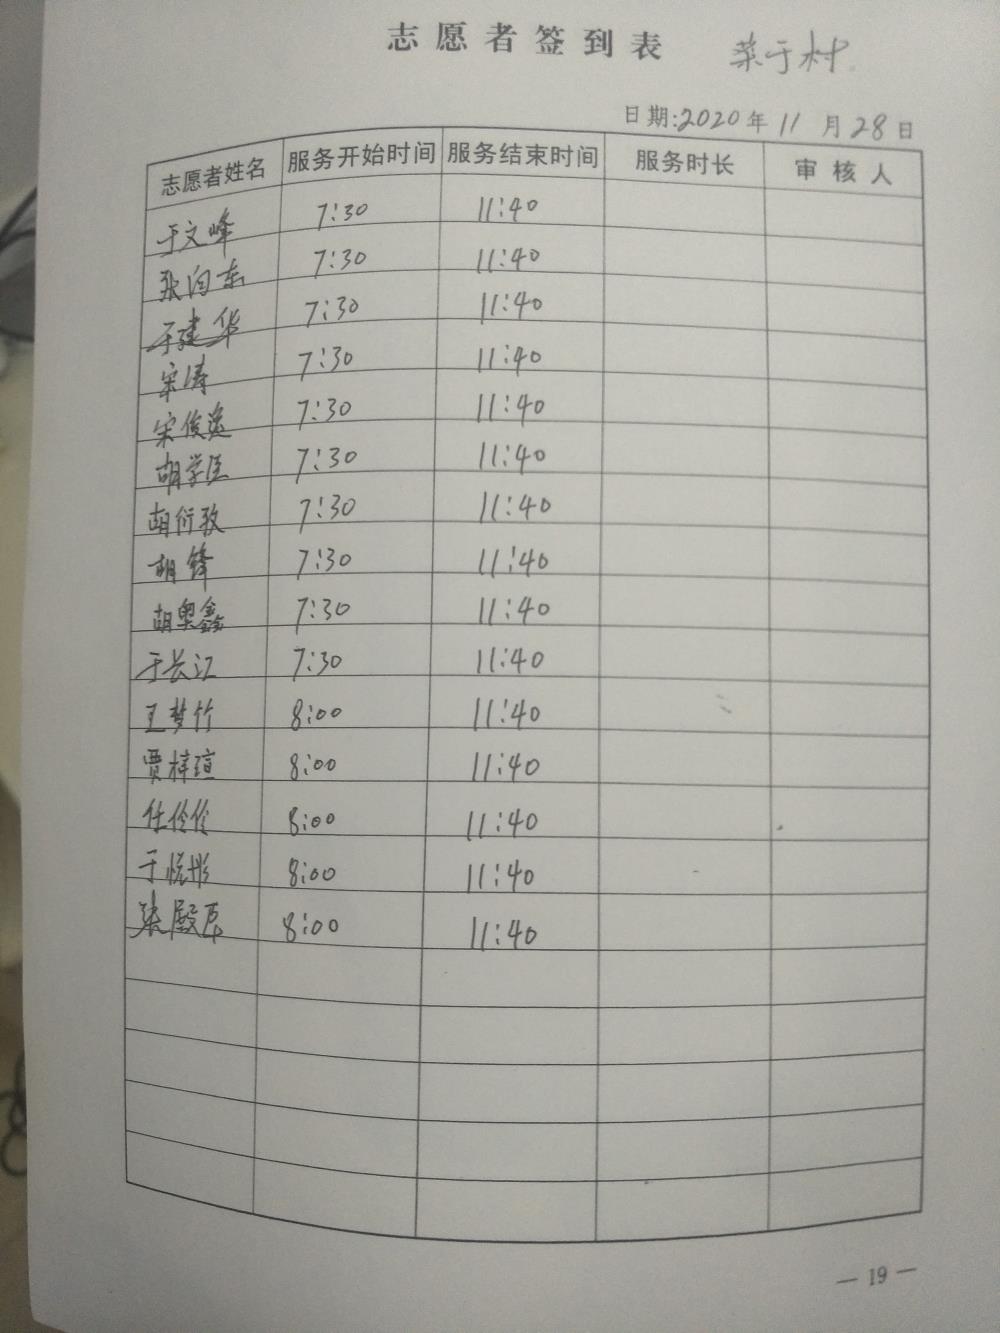 志愿者签到表 菜于村
日期:2020年11月28日
志愿者姓名 服务开始时间 服务结束时间 服务时长 审核人
于文峰 7:30 11:40
张向东 7:30 11:40
于建华 7:30 11:40
宋涛 7:30 11:40
宋俊逸 7:30 11:40
胡学臣 7:30 11:40
胡衍孜 7:30 11:40
胡锋 7:30 11:40
胡奥鑫 7:30 11:40
于长江 7:30 11:40
王梦竹 8:00 11:40
贾梓瑄 8:00 11:40
任伶伶 8:00 11:40
于悦彤 8:00 11:40
张殿臣 8:00 11:40
— 19 —